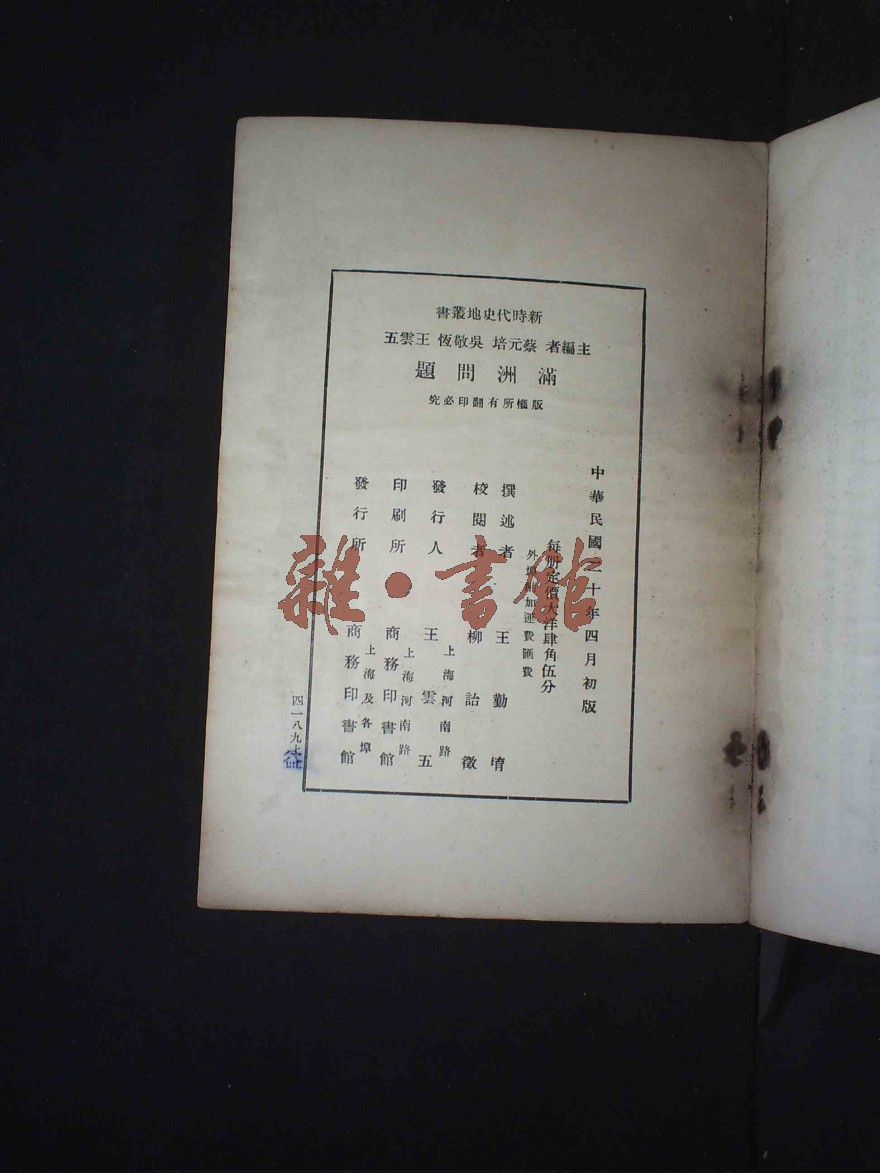 新時代史地叢書
主編者 蔡元培 吳敬恆 王雲五
滿洲問題
版權所有翻印必究
中華民國二十年四月初版
每册定價大洋肆角伍分
外埠酌加運費匯費
撰述者 王勤堉
校閱者 柳詒徵
發行人 王雲五
上海河南路
印刷所 商務印書館
上海河南路
發行所 商務印書館
上海及各埠
四一八九上
雜·書館